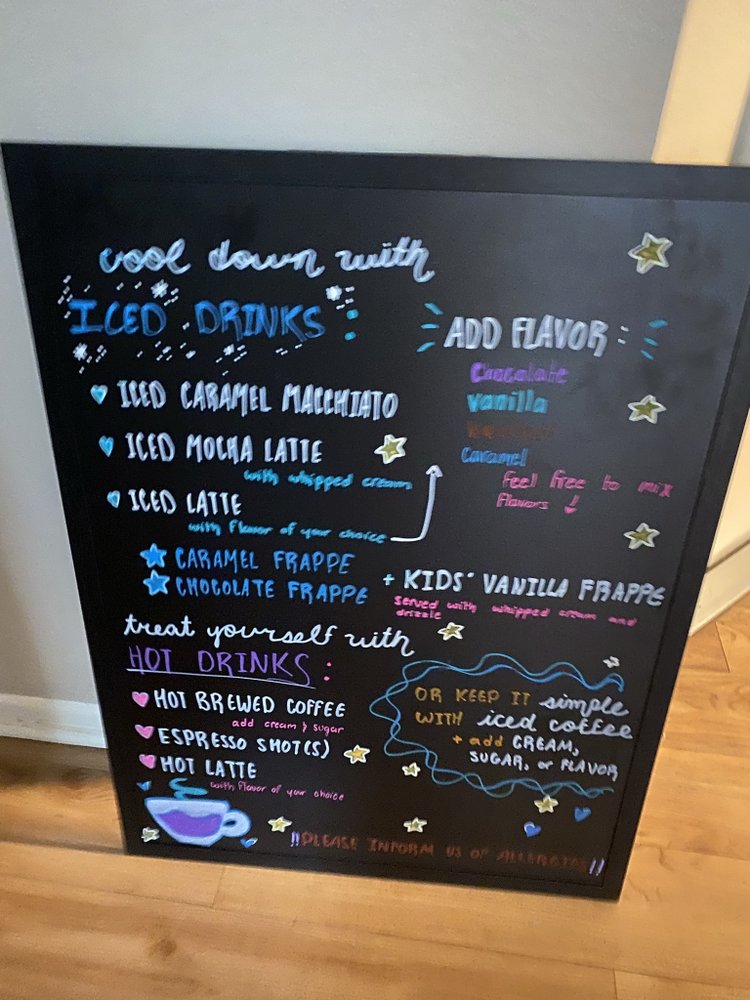 cool down with
ICED DRINKS:
♥ ICED CARAMEL MACCHIATO
♥ ICED MOCHA LATTE
with whipped cream
♥ ICED LATTE
with flavor of your choice
★ CARAMEL FRAPPE
★ CHOCOLATE FRAPPE
ADD FLAVOR:
Chocolate
Vanilla
Caramel
feel free to mix
flavors!
+ KIDS' VANILLA FRAPPE
served with whipped cream and
drizzle
treat yourself with
HOT DRINKS:
♥ HOT BREWED COFFEE
add cream & sugar
♥ ESPRESSO SHOT(S)
♥ HOT LATTE
with flavor of your choice
OR KEEP IT simple
WITH iced coffee
+ add CREAM,
SUGAR, or FLAVOR
!!PLEASE INFORM US OF ALLERGIES!!